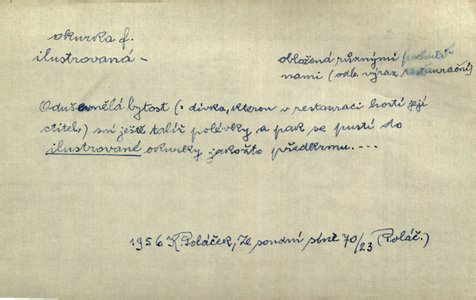 okurka f.
ilustrovaná –
obložená různými pochuti-
nami (odb. výraz restaurační)
Oduševnělá bytost (: dívka, kterou v restauraci hostí její
ctitel,) sní ještě talíř polévky a pak se pustí do
ilustrované okurky jakožto předkrmu....
1956 K. Poláček, Ze soudní síně 70/23 (Poláč.)